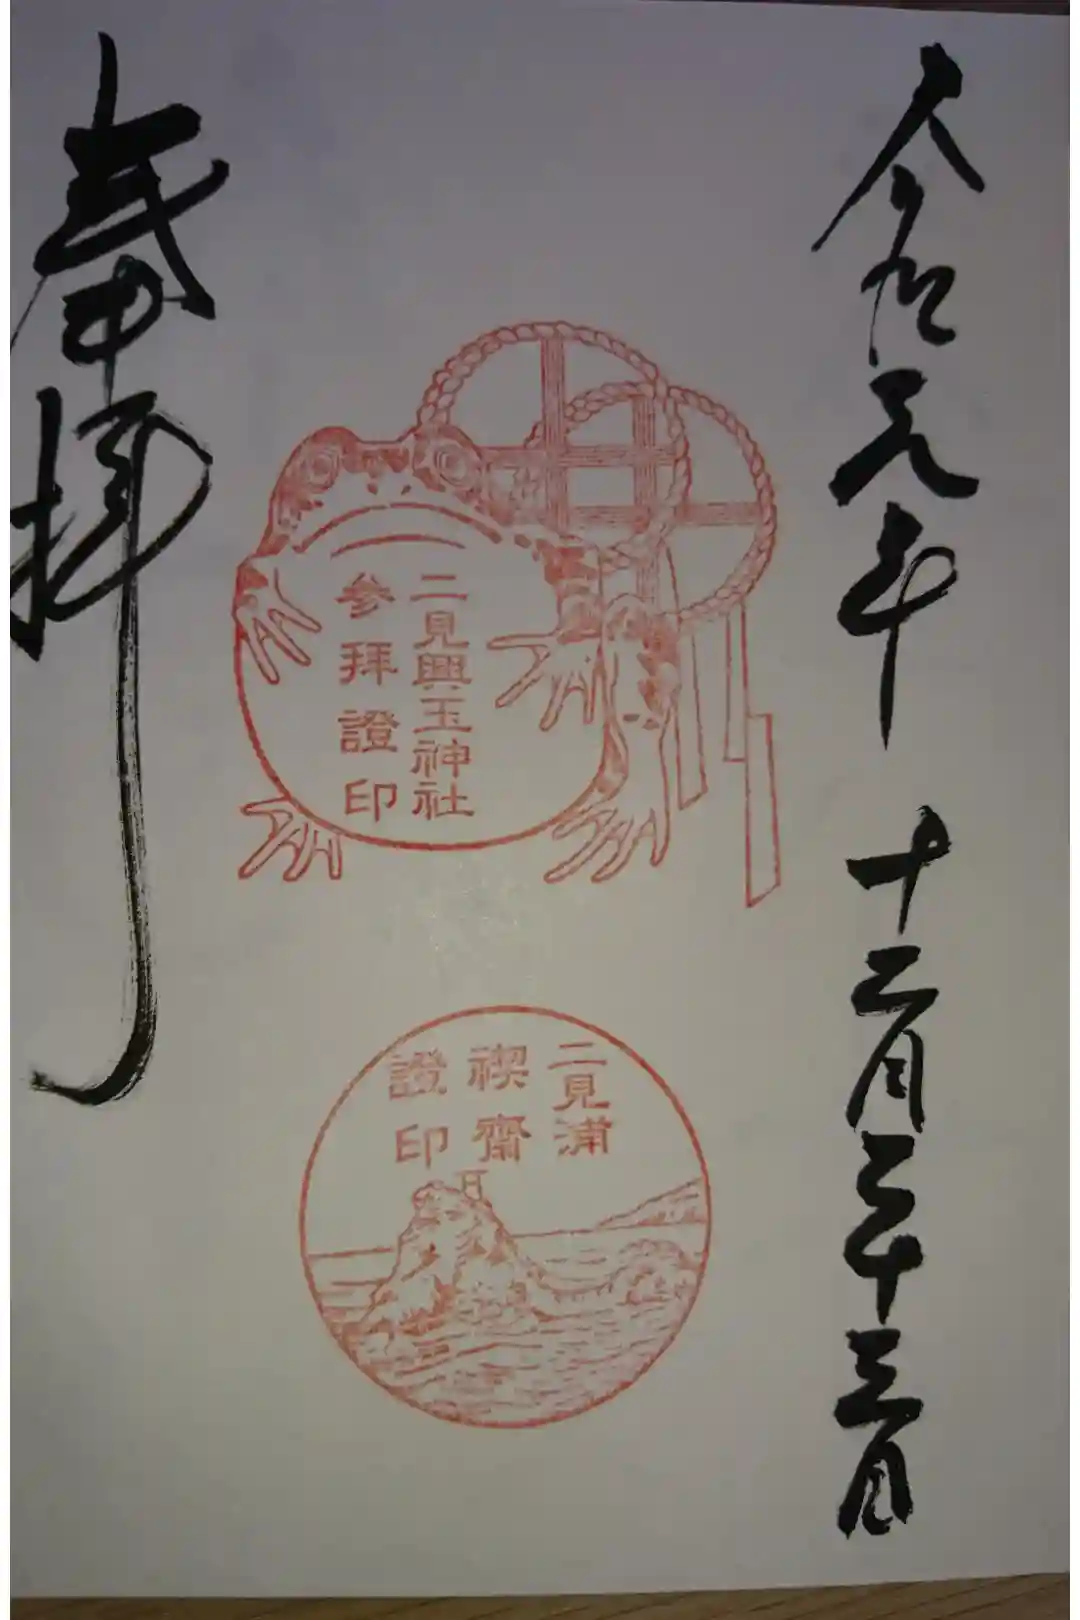 令和元年 十二月二十三日
二見興玉神社
参拜證印
二見浦
禊齋
證印
奉拝